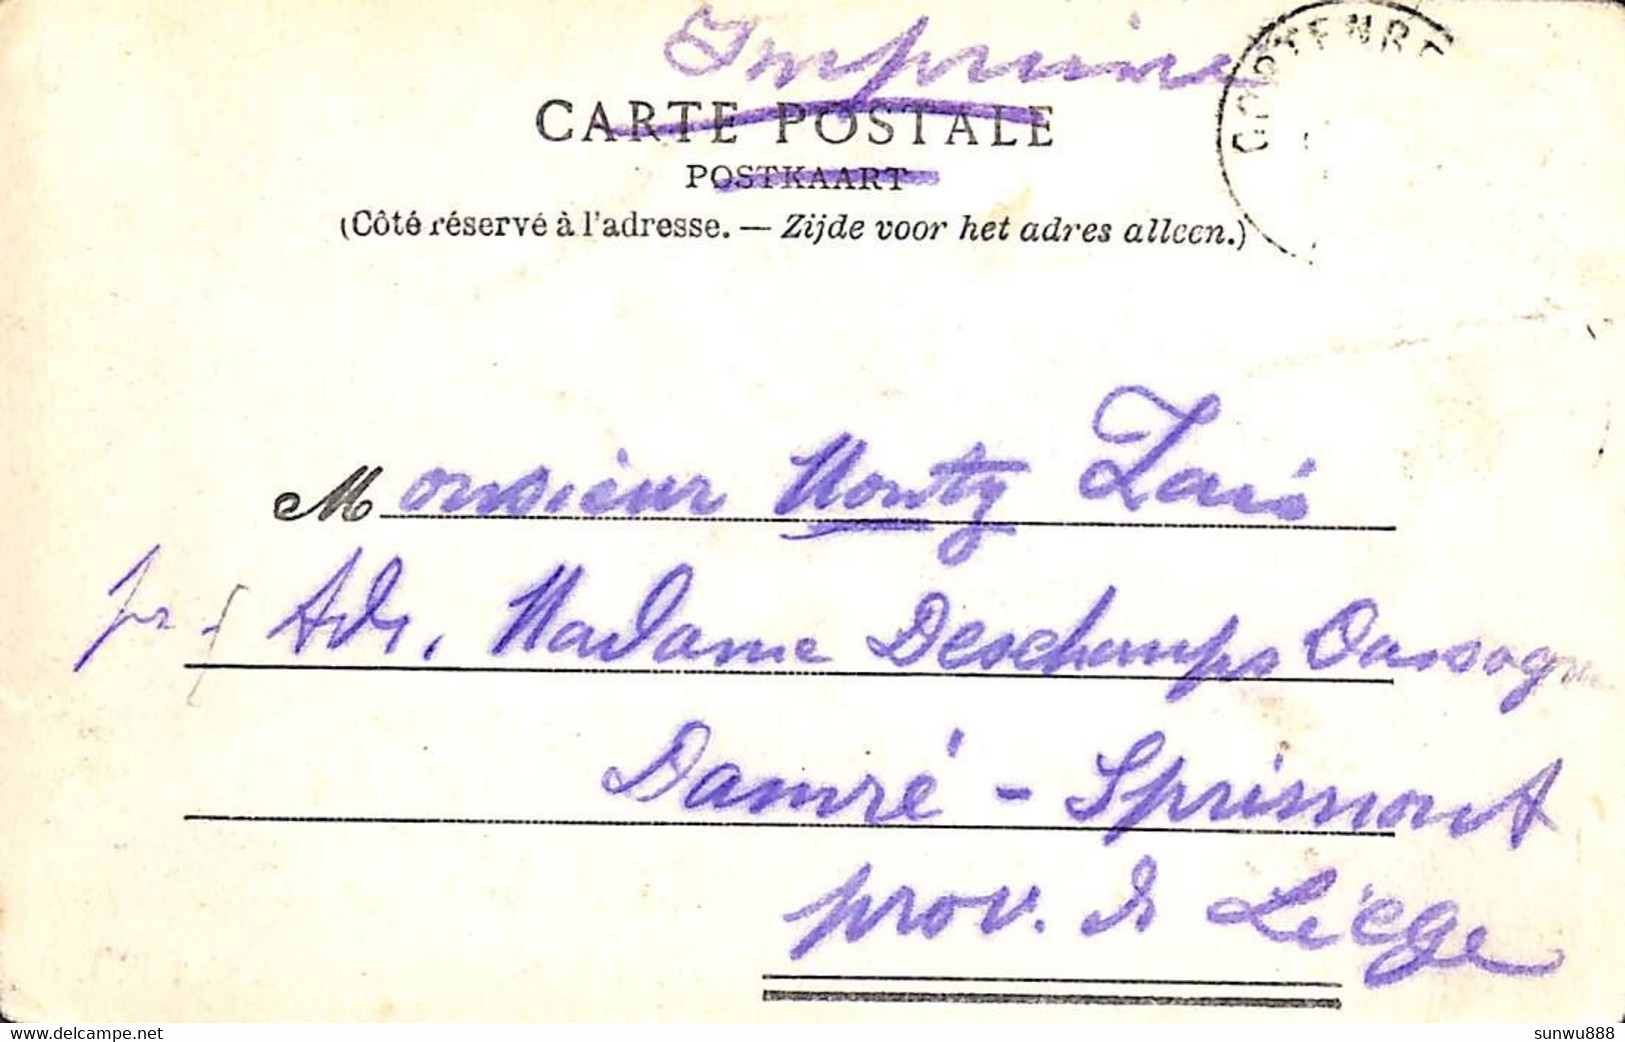 Imprimé
CARTE POSTALE
POSTKAART
(Côté réservé à l'adresse. — Zijde voor het adres alleen.)
Monsieur Monty Lais
Adr. Madame Deschamps
Damré - Sprimont
prov. de Liége
www.delcampe.net
sunwu888